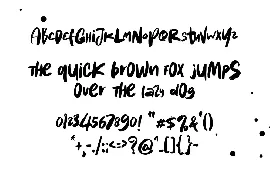 AbcDefGHiJKLMNoPQRstuVwXyz
THe quick brown FOX juMPS
Over THe lazy dOg
0123456789O! "#$%&'()
*+,-./:;<=>?@^_[]{}~